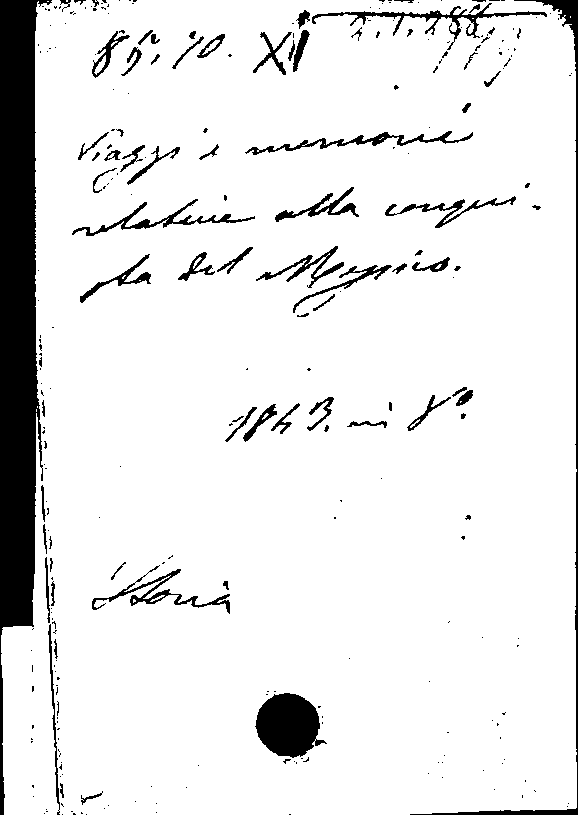 85.70. XII 2.1.288
Viaggi e memorie
relative alla conqui-
sta del Messico.
1843. in 8º.
Storia